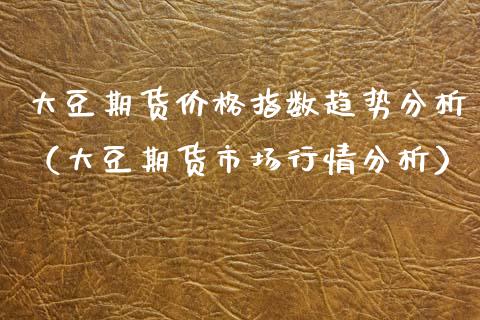 大豆期货价格指数趋势分析
（大豆期货市场行情分析）